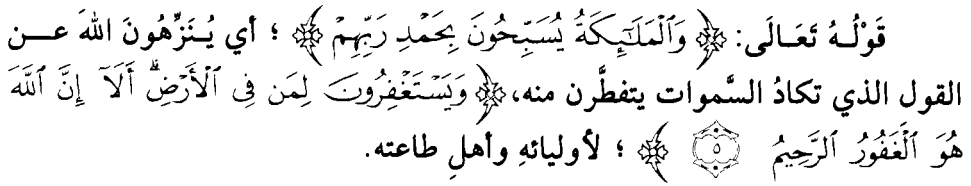 قَوْلُهُ تَعَالَى: ﴿ وَٱلْمَلَٰٓئِكَةُ يُسَبِّحُونَ بِحَمْدِ رَبِّهِمْ ﴾ ؛ أي يُنَزِّهُونَ اللهَ عن
القول الذي تكادُ السَّموات يتفطَّرن منه، ﴿ وَيَسْتَغْفِرُونَ لِمَن فِى ٱلْأَرْضِۗ أَلَآ إِنَّ ٱللَّهَ
هُوَ ٱلْغَفُورُ ٱلرَّحِيمُ ۝٥ ﴾ ؛ لأوليائهِ وأهلِ طاعته.